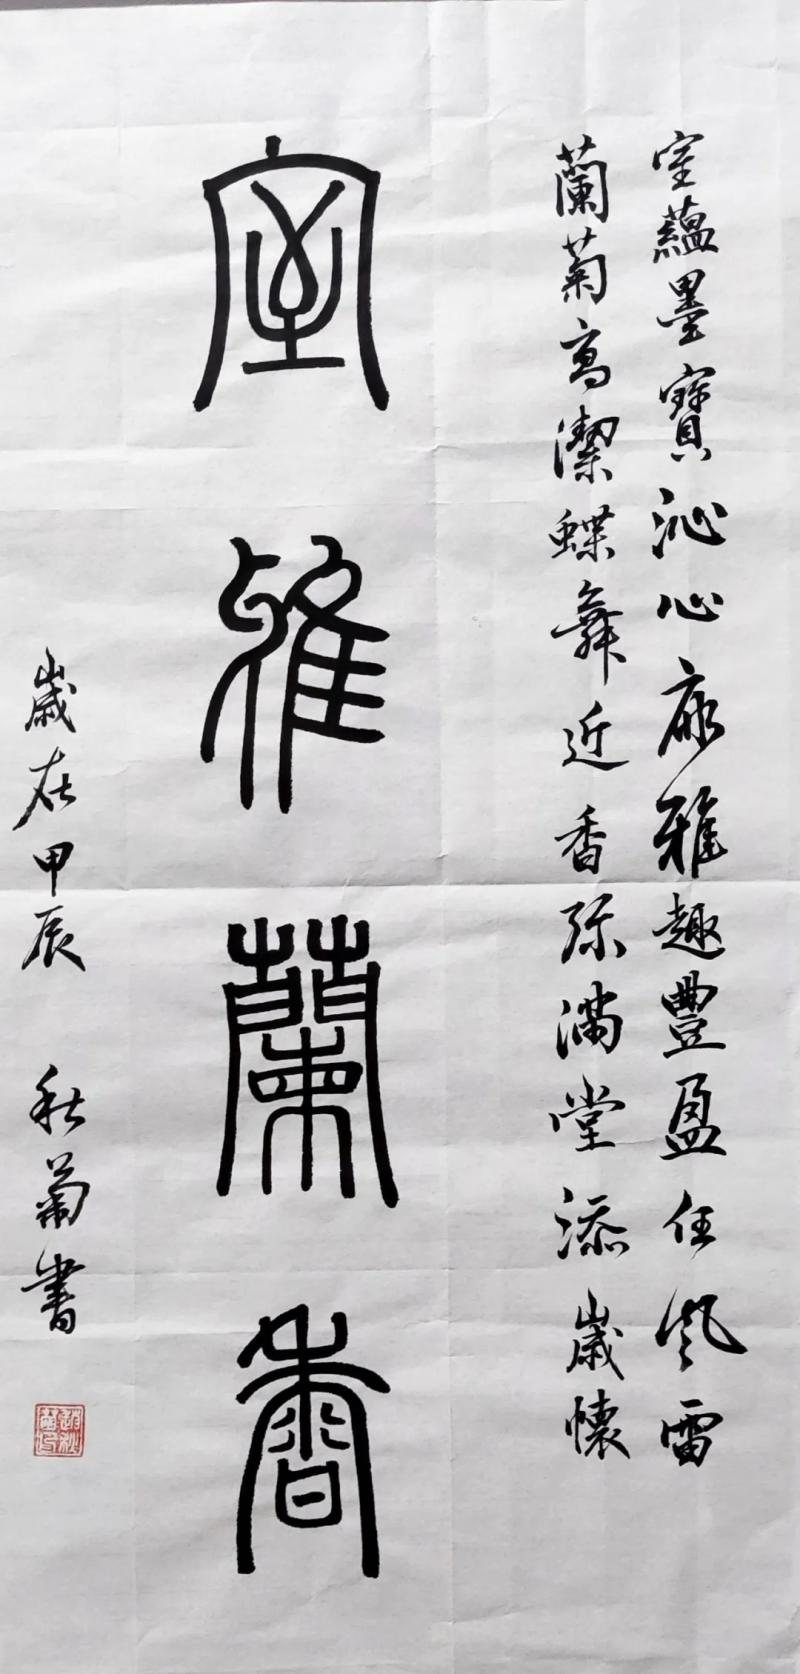 室蘊墨寶沁心康雅趣豐盈任風雷
蘭菊高潔蝶舞近香弥滿堂添歲懷
室雅蘭香
歲在甲辰 秋菊書